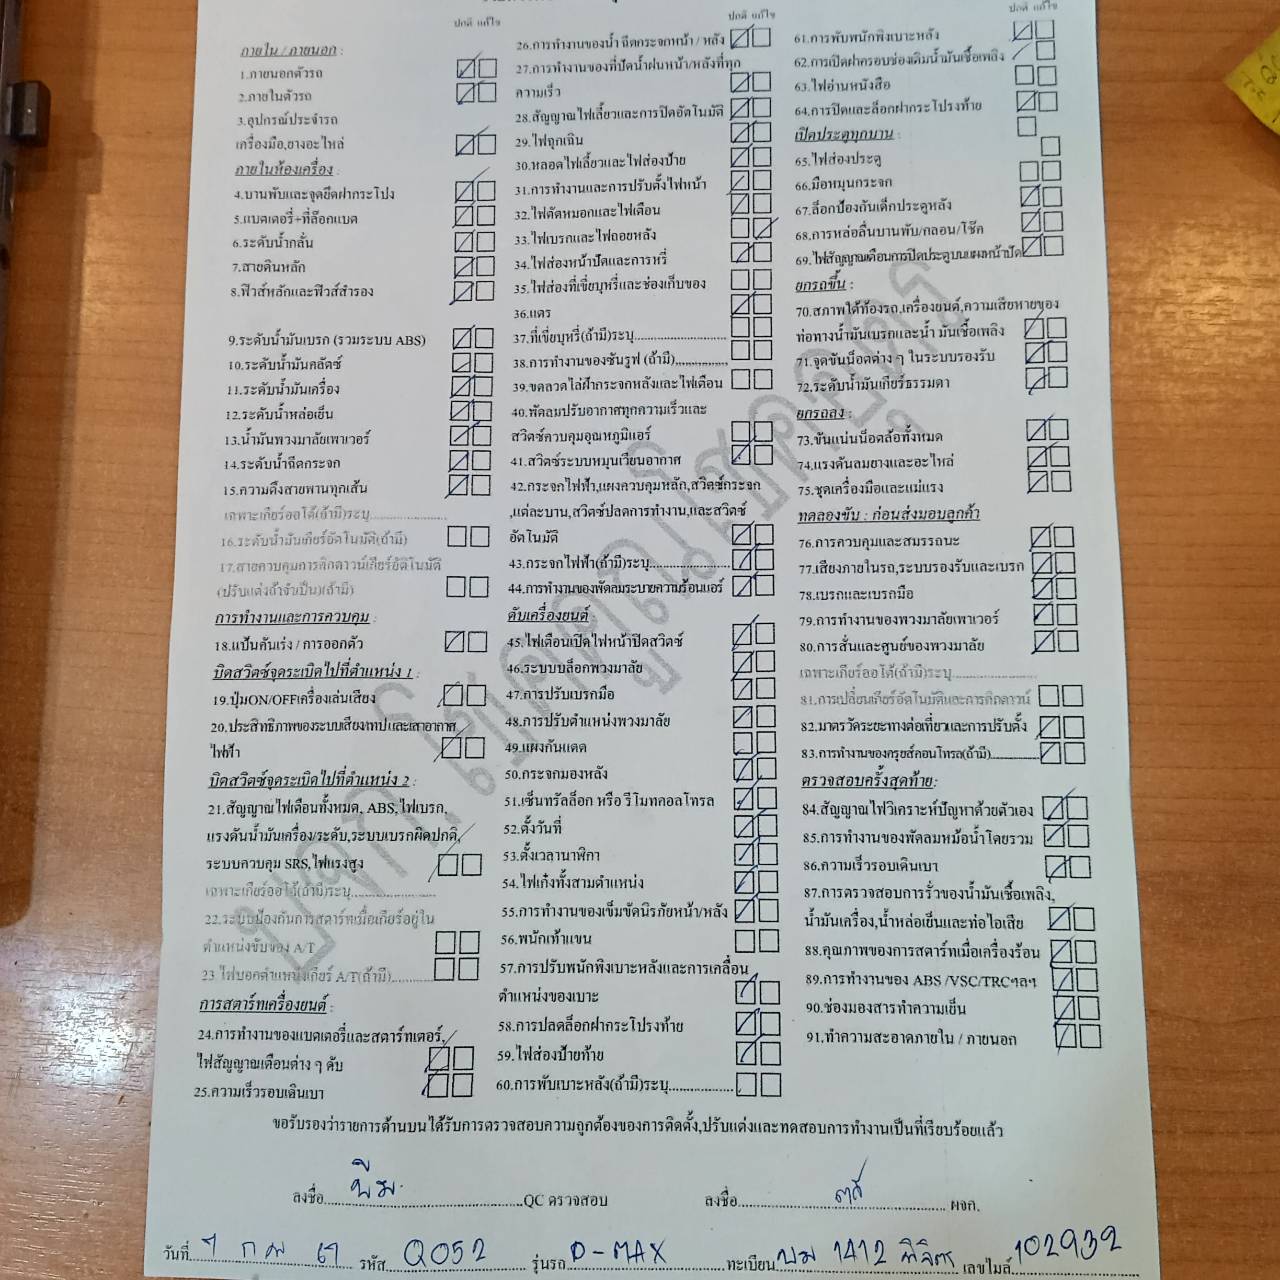 ปกติ แก้ไข
ภายใน / ภายนอก :
1.ภายนอกตัวรถ
2.ภายในตัวรถ
3.อุปกรณ์ประจำรถ
เครื่องมือ,ยางอะไหล่
ภายในห้องเครื่อง :
4.บานพับและจุดยึดฝากระโปง
5.แบตเตอรี่+ที่ล็อกแบต
6.ระดับน้ำกลั่น
7.สายดินหลัก
8.ฟิวส์หลักและฟิวส์สำรอง
9.ระดับน้ำมันเบรก (รวมระบบ ABS)
10.ระดับน้ำมันคลัตซ์
11.ระดับน้ำมันเครื่อง
12.ระดับน้ำหล่อเย็น
13.น้ำมันพวงมาลัยเพาเวอร์
14.ระดับน้ำฉีดกระจก
15.ความตึงสายพานทุกเส้น
เฉพาะเกียร์ออโต้(ถ้ามี)ระบุ
16.ระดับน้ำมันเกียร์อัตโนมัติ(ถ้ามี)
17.สายควบคุมการคิกดาวน์เกียร์อัติโนมัติ
(ปรับแต่งถ้าจำเป็น)(ถ้ามี)
การทำงานและการควบคุม :
18.แป้นคันเร่ง / การออกตัว
บิดสวิตซ์จุดระเบิดไปที่ตำแหน่ง 1 :
19.ปุ่มON/OFFเครื่องเล่นเสียง
20.ประสิทธิภาพของระบบเสียงเทป และเสาอากาศ
ไฟฟ้า
บิดสวิตซ์จุดระเบิดไปที่ตำแหน่ง 2 :
21.สัญญาณไฟเตือนทั้งหมด, ABS,ไฟเบรก,
แรงดันน้ำมันเครื่อง/ระดับ,ระบบเบรกผิดปกติ,
ระบบควบคุม SRS,ไฟแรงสูง
เฉพาะเกียร์ออโต้(ถ้ามี)ระบุ
22.ระบบป้องกันการสตาร์ทเมื่อเกียร์อยู่ใน
ตำแหน่งขับของ A/T
23.ไฟบอกตำแหน่งเกียร์ A/T(ถ้ามี)
การสตาร์ทเครื่องยนต์ :
24.การทำงานของแบตเตอรี่และสตาร์ทเตอร์,
ไฟสัญญาณเตือนต่าง ๆ ดับ
25.ความเร็วรอบเดินเบา
ปกติ แก้ไข
26.การทำงานของน้ำ ฉีดกระจกหน้า / หลัง
27.การทำงานของที่ปัดน้ำฝนหน้า/หลังที่ทุก
ความเร็ว
28.สัญญาณไฟเลี้ยวและการปิดอัตโนมัติ
29.ไฟฉุกเฉิน
30.หลอดไฟเลี้ยวและไฟส่องป้าย
31.การทำงานและการปรับตั้งไฟหน้า
32.ไฟตัดหมอกและไฟเตือน
33.ไฟเบรกและไฟถอยหลัง
34.ไฟส่องหน้าปัดและการหรี่
35.ไฟส่องที่เขี่ยบุหรี่และช่องเก็บของ
36.แตร
37.ที่เขี่ยบุหรี่(ถ้ามี)ระบุ
38.การทำงานของซันรูฟ (ถ้ามี)
39.ขดลวดไล่ฝ้ากระจกหลังและไฟเตือน
40.พัดลมปรับอากาศทุกความเร็วและ
สวิตซ์ควบคุมอุณหภูมิแอร์
41.สวิตซ์ระบบหมุนเวียนอากาศ
42.กระจกไฟฟ้า,แผงควบคุมหลัก,สวิตซ์กระจก
,แต่ละบาน,สวิตซ์ปลดการทำงาน,และสวิตซ์
อัตโนมัติ
43.กระจกไฟฟ้า(ถ้ามี)ระบุ
44.การทำงานของพัดลมระบายความร้อนแอร์
ดับเครื่องยนต์ :
45.ไฟเตือนเปิดไฟหน้าปิดสวิตซ์
46.ระบบบล็อกพวงมาลัย
47.การปรับเบรกมือ
48.การปรับตำแหน่งพวงมาลัย
49.แผงกันแดด
50.กระจกมองหลัง
51.เซ็นทรัลล็อก หรือ รีโมทคอลโทรล
52.ตั้งวันที่
53.ตั้งเวลานาฬิกา
54.ไฟเก๋งทั้งสามตำแหน่ง
55.การทำงานของเข็มขัดนิรภัยหน้า/หลัง
56.พนักเท้าแขน
57.การปรับพนักพิงเบาะหลังและการเคลื่อน
ตำแหน่งของเบาะ
58.การปลดล็อกฝากระโปรงท้าย
59.ไฟส่องป้ายท้าย
60.การพับเบาะหลัง(ถ้ามี)ระบุ
ปกติ แก้ไข
61.การพับพนักพิงเบาะหลัง
62.การเปิดฝาครอบช่องเติมน้ำมันเชื้อเพลิง
63.ไฟอ่านหนังสือ
64.การปิดและล็อกฝากระโปรงท้าย
เปิดประตูทุกบาน :
65.ไฟส่องประตู
66.มือหมุนกระจก
67.ล็อกป้องกันเด็กประตูหลัง
68.การหล่อลื่นบานพับ/กลอน/โช๊ค
69.ไฟสัญญาณเตือนการปิดประตูบนแผงหน้าปัด
ยกรถขึ้น :
70.สภาพใต้ท้องรถ,เครื่องยนต์,ความเสียหายของ
ท่อทางน้ำมันเบรกและน้ำ มันเชื้อเพลิง
71.จุดขันน็อตต่าง ๆ ในระบบรองรับ
72.ระดับน้ำมันเกียร์ธรรมดา
ยกรถลง :
73.ขันแน่นน็อตล้อทั้งหมด
74.แรงดันลมยางและอะไหล่
75.ชุดเครื่องมือและแม่แรง
ทดลองขับ : ก่อนส่งมอบลูกค้า
76.การควบคุมและสมรรถนะ
77.เสียงภายในรถ,ระบบรองรับและเบรก
78.เบรกและเบรกมือ
79.การทำงานของพวงมาลัยเพาเวอร์
80.การสั่นและศูนย์ของพวงมาลัย
เฉพาะเกียร์ออโต้(ถ้ามี)ระบุ
81.การเปลี่ยนเกียร์อัตโนมัติและการคิกดาวน์
82.มาตรวัดระยะทางต่อเที่ยวและการปรับตั้ง
83.การทำงานของครุยส์คอนโทรล(ถ้ามี)
ตรวจสอบครั้งสุดท้าย:
84.สัญญาณไฟวิเคราะห์ปัญหาด้วยตัวเอง
85.การทำงานของพัดลมหม้อน้ำโดยรวม
86.ความเร็วรอบเดินเบา
87.การตรวจสอบการรั่วของน้ำมันเชื้อเพลิง,
น้ำมันเครื่อง,น้ำหล่อเย็นและท่อไอเสีย
88.คุณภาพของการสตาร์ทเมื่อเครื่องร้อน
89.การทำงานของ ABS /VSC/TRCฯลฯ
90.ช่องมองสารทำความเย็น
91.ทำความสะอาดภายใน / ภายนอก
ขอรับรองว่ารายการด้านบนได้รับการตรวจสอบความถูกต้องของการติดตั้ง,ปรับแต่งและทดสอบการทำงานเป็นที่เรียบร้อยแล้ว
ลงชื่อ QC ตรวจสอบ ลงชื่อ ผจก.
วันที่ 7 กพ 67 รหัส Q052 รุ่นรถ D-MAX ทะเบียน บม 1412 พิจิตร เลขไมล์ 102932